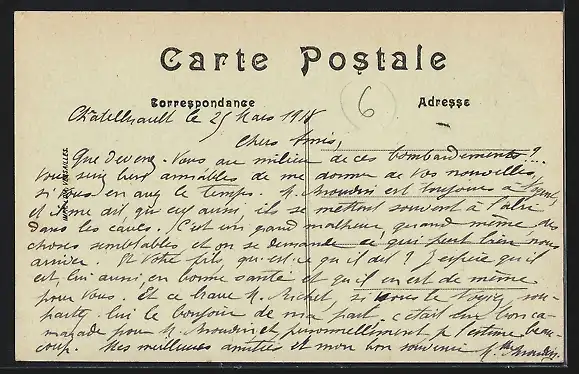 Carte Postale
Correspondance
Adresse
6
Châtellerault le 25 Mars 1918
Chers Amis,
Que devenez-vous au milieu de ces bombardements ?...
Vous seriez bien aimables de me donner de vos nouvelles,
si vous en avez le temps. M. est toujours à
et il me dit, qu'eux aussi, ils se mettent souvent à l'abri
dans les caves. C'est un grand malheur, quand même des
choses semblables, et on se demande ce qui peut bien nous
arriver. Et votre fils, qu'est-ce qu'il dit ? J'espère qu'il
est, lui aussi en bonne santé et qu'il en est de même
pour vous. Et ce brave M. Richet, si vous le voyez, sou-
haitez-lui le bonjour de ma part. c'était un bon ca-
marade pour M. et personnellement je l'estime beau-
coup. Mes meilleures amitiés et mon bon souvenir